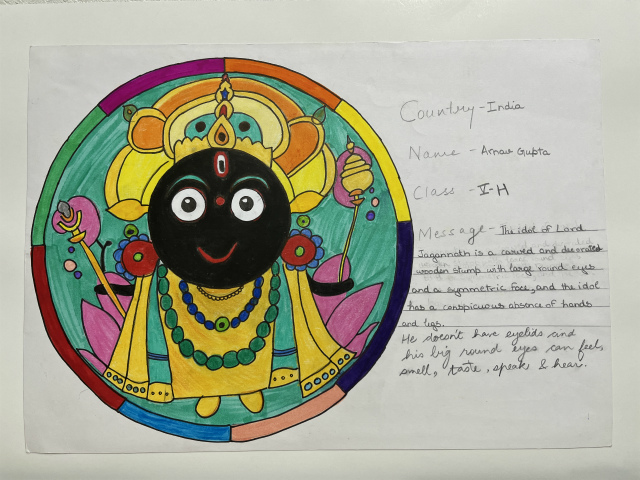 Country - India
Name - Arnav Gupta
Class - V-H
Message - The idol of Lord
Jagannath is a carved and decorated
wooden stump with large round eyes
and a symmetric face, and the idol
has a conspicuous absence of hands
and legs.
He doesn't have eyelids and
his big round eyes can feel,
smell, taste, speak & hear.